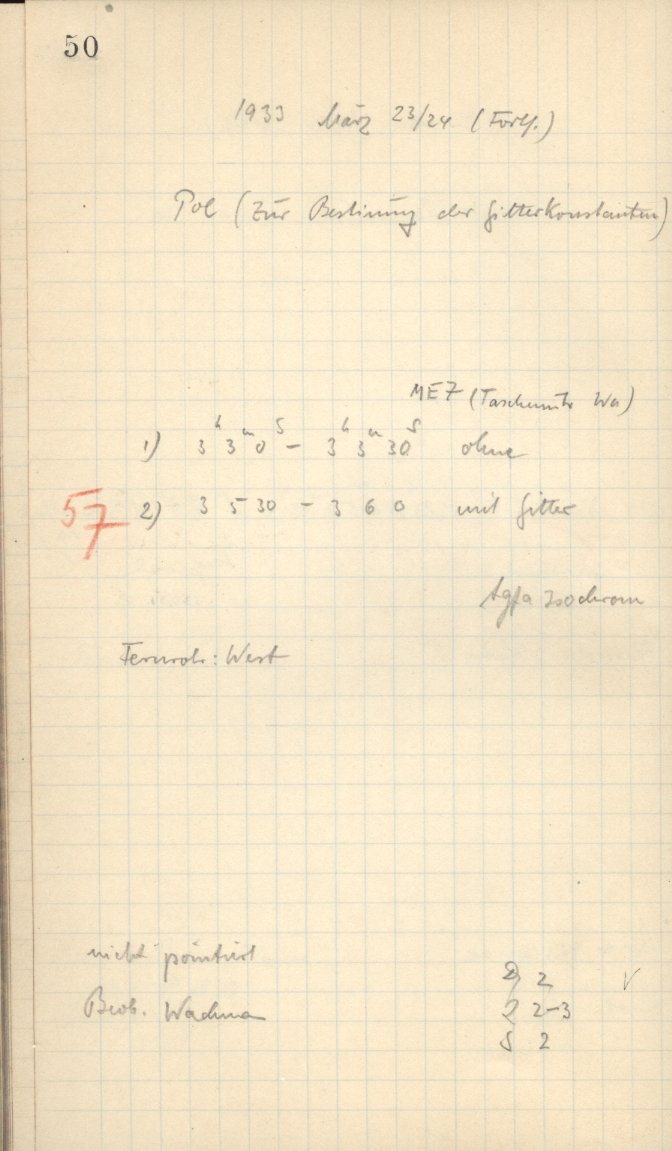 50
1933 März 23/24 (Forts.)
Pol (Zur Bestimung der Gitterkonstanten)
MEZ (Taschenuhr Wa)
1) 3h 3m 0s - 3h 3m 30s ohne
57 2) 3 5 30 - 3 6 0 mit Gitter
Agfa Isochrom
Fernrohr: West
nicht pointiert
2
Beob. Wachman
2-3
S 2